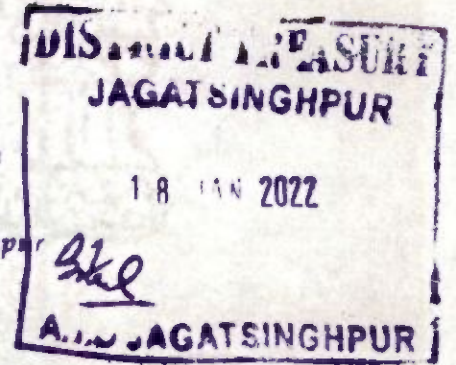 DISTRICT TREASURY
JAGATSINGHPUR
18 JAN 2022
JAGATSINGHPUR